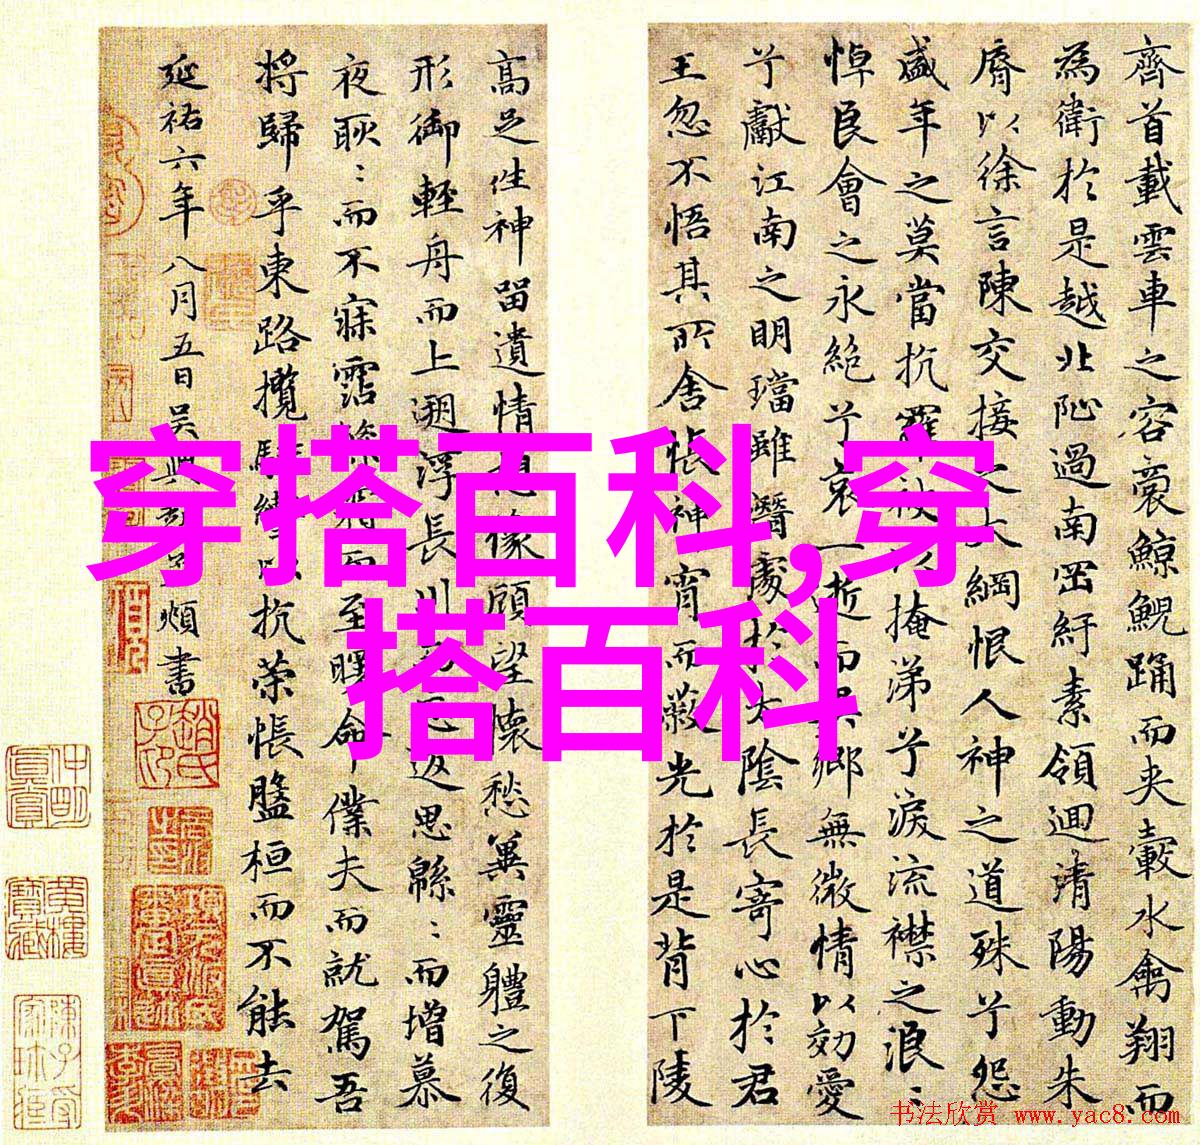 齊首載雲車之容裔鯨鯢踊而夾轂水禽翔而
為衛於是越北沚過南岡紆素領迴清陽動朱
脣以徐言陳交接之大綱恨人神之道殊兮怨
盛年之莫當抗羅袂以掩涕兮淚流襟之浪〻
悼良會之永絕兮哀一逝而異鄉無微情以効愛
兮獻江南之明璫雖潛處於太陰長寄心於君
王忽不悟其所舍悵神宵而蔽光於是背下陵
高足往神留遺情想像顧望懷愁冀靈體之復
形御輕舟而上遡浮長川而忘返思緜〻而增慕
夜耿〻而不寐霑繁霜而至曙命僕夫而就駕吾
將歸乎東路攬騑轡以抗策悵盤桓而不能去
延祐六年八月五日吴興趙孟頫書
穿搭百科,穿
搭百科
书法欣赏 www.yac8.com